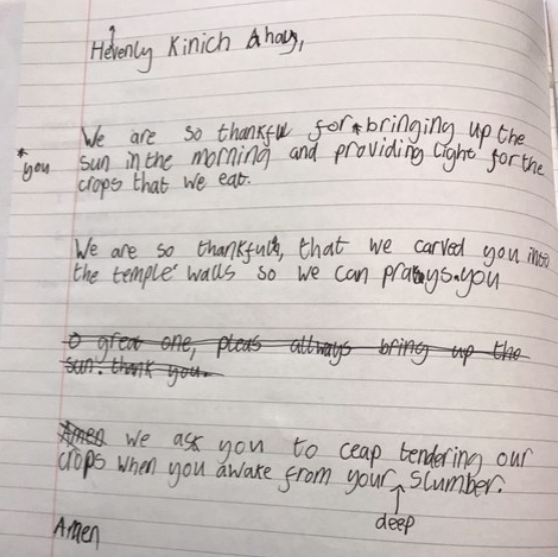 Hevenly Kinich Ahay,
We are so thankful for * bringing up the
* you
sun in the morning and providing light for the
crops that we eat.
We are so thankful, that we carved you into
the temple walls so we can prays you
O great one, pleas allways bring up the
sun. thank you.
Amen we ask you to ceap tendering our
crops when you awake from your slumber.
deep
Amen